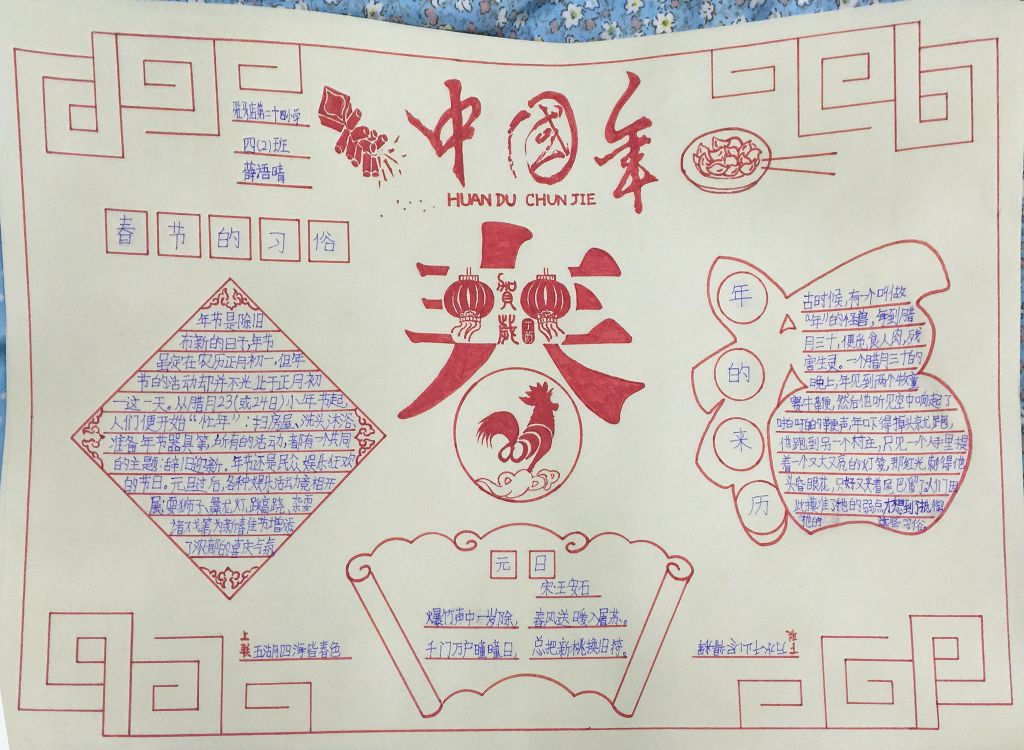 驻马店第二十四小学
四(2)班
薛浯晴
中国年
HUAN DU CHUN JIE
春节的习俗
春
贺岁
丁酉
年节是除旧
布新的日子,年节
虽定在农历正月初一,但年
节的活动却并不光止于正月初
一这一天。从腊月23(或24日)小年节起,
人们便开始"忙年":扫房屋、洗头沐浴、
准备年节器具等,所有的活动,都有一个共同
的主题:辞旧迎新,年节还是民众娱乐狂欢
的节日。元旦过后,各种娱乐活动竞相开
展:耍狮子、舞龙灯、踩高跷、杂耍
诸戏等为新春佳节增添
了浓郁的喜庆气氛
年的来历
古时候,有一个叫做
"年"的怪兽,每到腊
月三十,便出食人肉,残
害生灵。一个腊月三十的
晚上,年见到两个牧童
赛牛鞭,然后他听见空中响起了
啪啪的鞭声,年吓得掉头就跑,
他跑到另一个村庄,只见一个大手里提
着一个又大又亮的灯笼,那红光刺得他
头昏眼花,只好又夹着尾巴溜了,人们因
此摸准了他的弱点,才想到了抵御
他的
这些习俗。
元日
宋·王安石
爆竹声中一岁除,春风送暖入屠苏。
千门万户曈曈日,总把新桃换旧符。
上联
五湖四海皆春色
下联